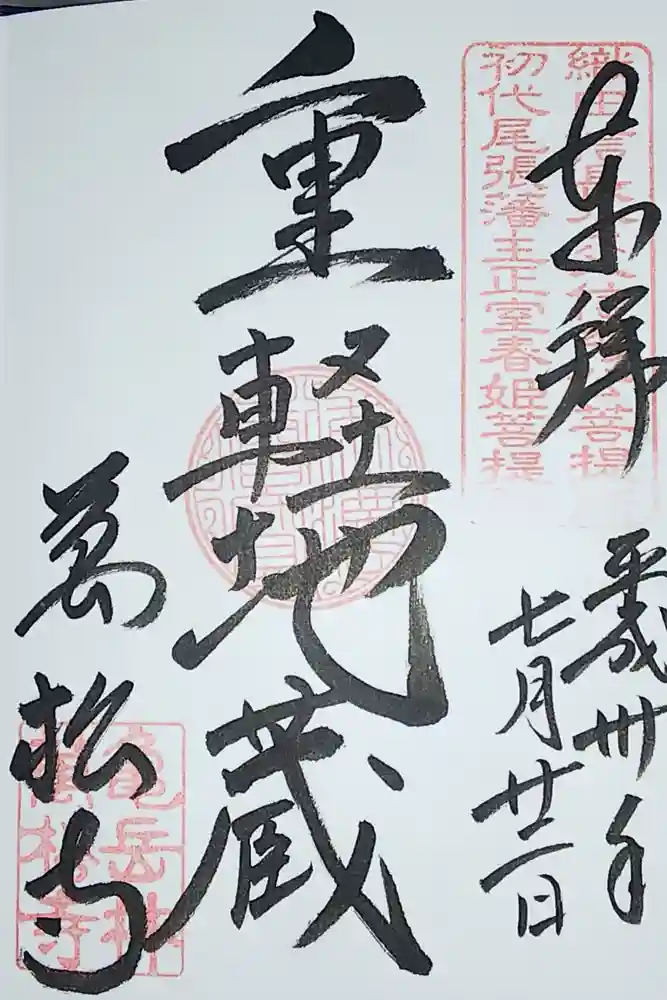 奉拝
平成卅年
七月廿二日
織田信長
菩提
初代尾張藩主正室春姫菩提
重軽地蔵
萬松寺
亀岳林
萬松寺